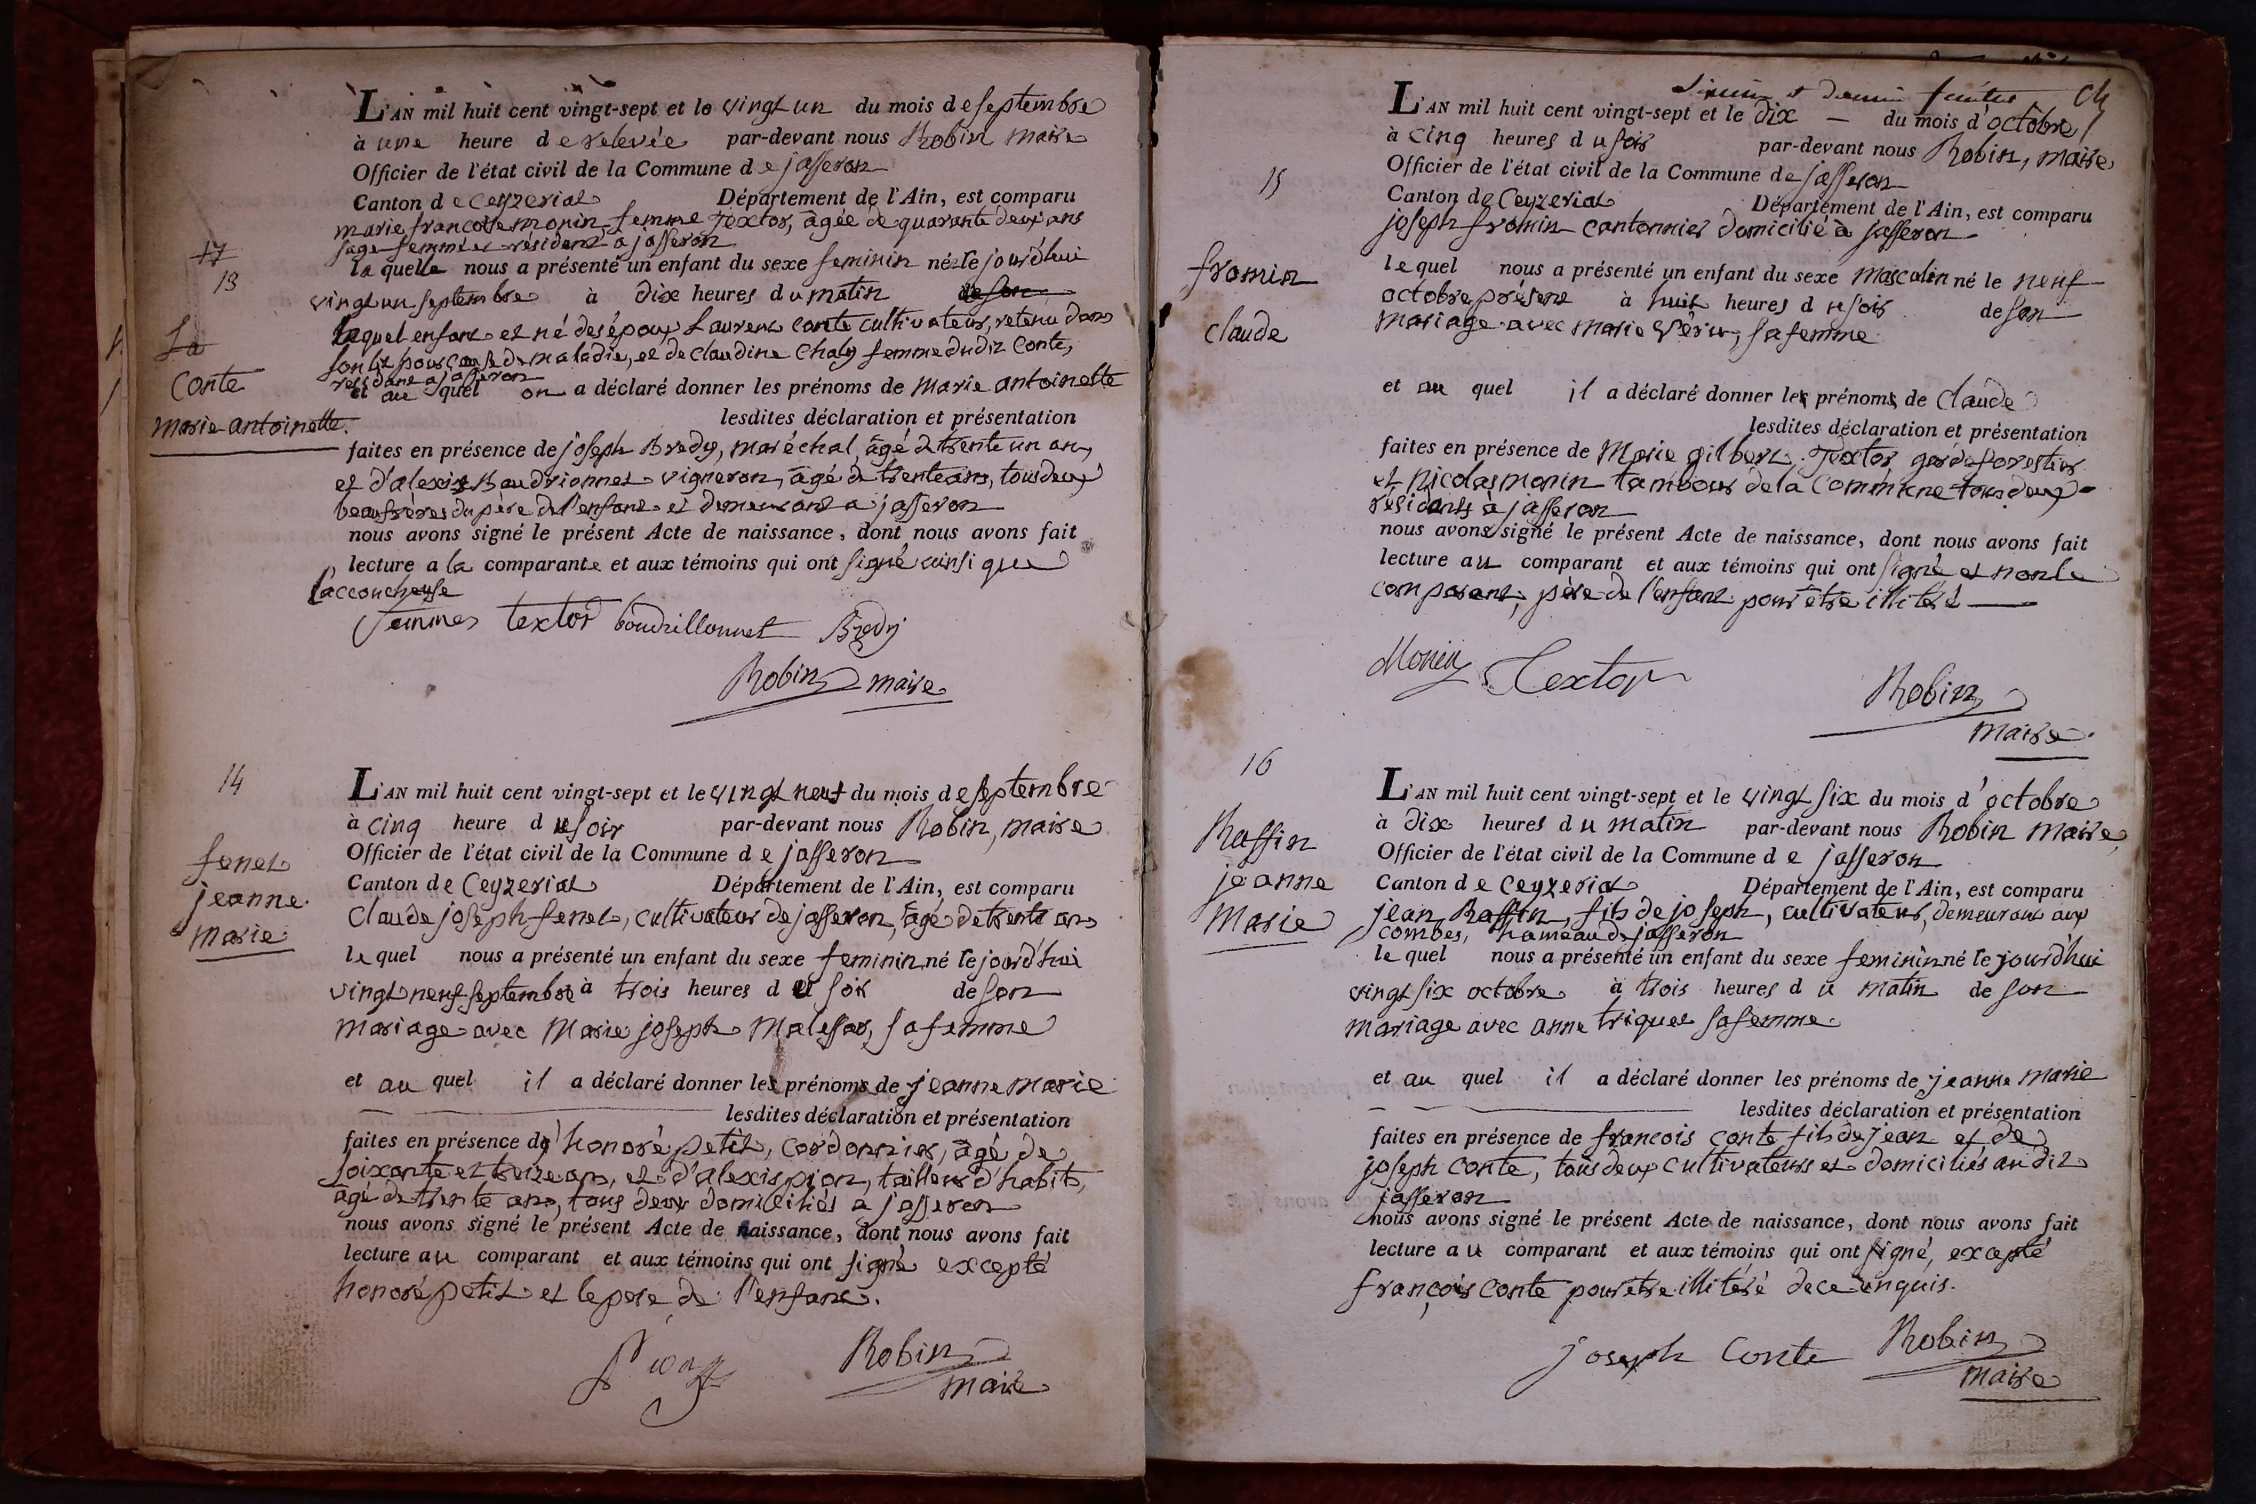 L'AN mil huit cent vingt-sept et le vingt un du mois de septembre
à une heure de relevée par-devant nous Robin maire
Officier de l'état civil de la Commune de jasseron
Canton de Ceyzeriat Département de l'Ain, est comparu
marie francoise monin, femme Textor, âgée de quarante deux ans
sage femme et résident a jasseron
17
la quelle nous a présenté un enfant du sexe feminin né le jourd'hui
13
vingt un septembre à dix heures du matin de son
lequel enfant et né des époux Laurent conte cultivateur, retenu dans
La
son lit pour cause de maladie, et de claudine Chaly femme dudit Conte,
residant a jasseron
Conte
et au quel on a déclaré donner les prénoms de marie antoinette
marie antoinette.
lesdites déclaration et présentation
faites en présence de joseph Bredy, maréchal, âgé de trente un an,
et d'alexis Baudrionnet vigneron, âgé de trente ans, tous deux
beaufrères du père de l'enfant et demeurant a jasseron
nous avons signé le présent Acte de naissance, dont nous avons fait
lecture a la comparante et aux témoins qui ont signé ainsi que
l'accoucheuse
femme textor boudrillonnet Bredy
Robin maire
14
L'AN mil huit cent vingt-sept et le vingt neuf du mois de septembre
à cinq heure du soir par-devant nous Robin, maire
Officier de l'état civil de la Commune de jasseron
fenet
Canton de Ceyzeriat Département de l'Ain, est comparu
jeanne
Claude joseph fenet, cultivateur de jasseron, âgé de trente ans
marie
le quel nous a présenté un enfant du sexe feminin né le jourd'hui
vingt neuf septembre à trois heures du soir de son
mariage avec Marie joseph Malessar, sa femme
et au quel il a déclaré donner les prénoms de jeanne marie
lesdites déclaration et présentation
faites en présence d'honoré petit, cordonnier, âgé de
soixante et treize ans, et d'alexis pion, tailleur d'habits,
âgé de trente ans, tous deux domiciliés a jasseron
nous avons signé le présent Acte de naissance, dont nous avons fait
lecture au comparant et aux témoins qui ont signé excepté
honoré petit et le pere de l'enfant.
Robin
maire
L'AN mil huit cent vingt-sept et le dix du mois d'octobre
à cinq heures du soir par-devant nous Robin, maire
Officier de l'état civil de la Commune de jasseron
15
Canton de Ceyzeriat Département de l'Ain, est comparu
joseph fromin cantonnier domicilié à jasseron
fromin
le quel nous a présenté un enfant du sexe masculin né le neuf
octobre présent à huit heures du soir de son
claude
mariage avec marie sa femme
et au quel il a déclaré donner les prénoms de claude
lesdites déclaration et présentation
faites en présence de Marie gilbert Textor garde forestier
et nicolas monin tambour de la commune tous deux
résidants à jasseron
nous avons signé le présent Acte de naissance, dont nous avons fait
lecture au comparant et aux témoins qui ont signé et non le
comparant, père de l'enfant pour être illitéré
Monin Textor
Robin
maire.
16
L'AN mil huit cent vingt-sept et le vingt six du mois d'octobre
à dix heures du matin par-devant nous Robin maire
Raffin
Officier de l'état civil de la Commune de jasseron
jeanne
Canton de Ceyzeriat Département de l'Ain, est comparu
marie
jean Raffin, fils de joseph, cultivateur, demeurant aux
combes, hameau de jasseron
le quel nous a présenté un enfant du sexe feminin né le jourd'hui
vingt six octobre à trois heures du matin de son
mariage avec anne triquet sa femme.
et au quel il a déclaré donner les prénoms de jeanne marie
lesdites déclaration et présentation
faites en présence de francois conte fils de jean et de
joseph conte, tous deux cultivateurs et domiciliés au dit
jasseron
nous avons signé le présent Acte de naissance, dont nous avons fait
lecture au comparant et aux témoins qui ont signé, excepté
françois conte pour etre illitéré de ce enquis.
joseph Conte Robin
maire